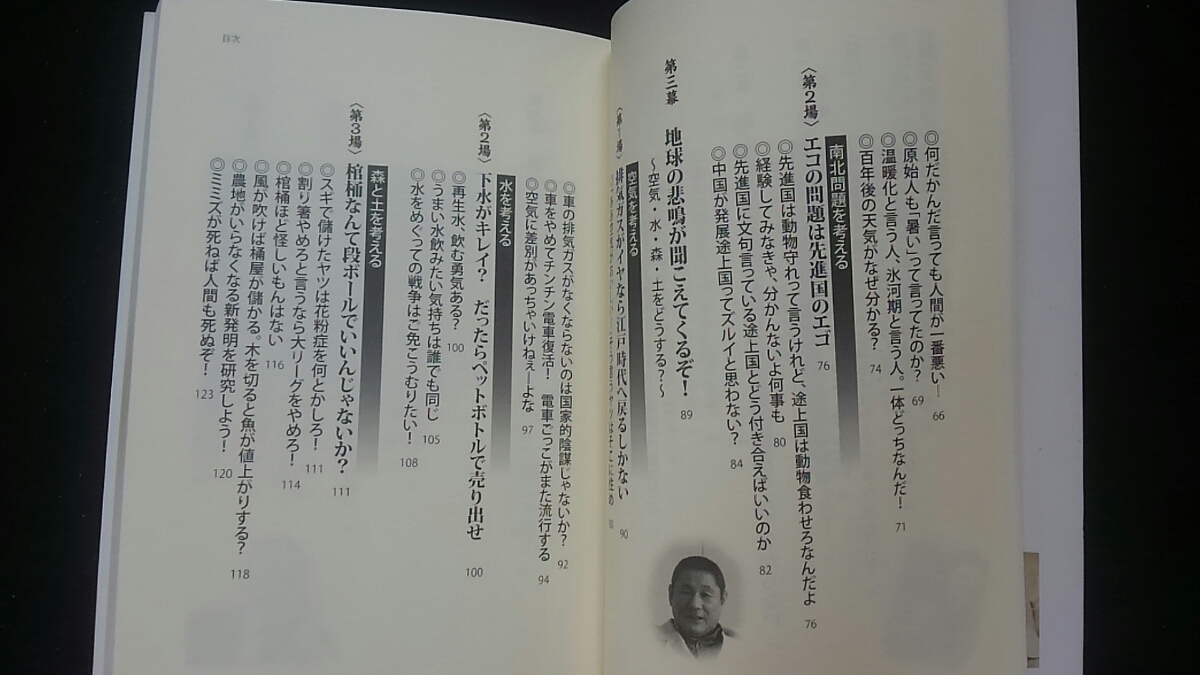 ◎何だかんだ言っても人間が一番悪い― 66
◎原始人も「暑い」って言ってたのか? 69
◎温暖化と言う人、氷河期と言う人。一体どっちなんだ! 71
◎百年後の天気がなぜ分かる? 74
〈第2場〉エコの問題は先進国のエゴ 76
南北問題を考える
◎先進国は動物守れって言うけれど、途上国は動物食わせろなんだよ 76
◎経験してみなきゃ、分かんないよ何事も 80
◎先進国に文句言っている途上国とどう付き合えばいいのか 82
◎中国が発展途上国ってズルイと思わない? 84
第三幕 地球の悲鳴が聞こえてくるぞ! 89
~空気・水・森・土をどうする?~
〈第1場〉排気ガスがイヤなら江戸時代へ戻るしかない 90
空気を考える
目次
◎車の排気ガスがなくならないのは国家的陰謀じゃないか? 92
◎車をやめてチンチン電車復活! 電車ごっこがまた流行する 94
◎空気に差別があっちゃいけねぇーよな 97
〈第2場〉下水がキレイ? だったらペットボトルで売り出せ 100
水を考える
◎再生水、飲む勇気ある? 100
◎うまい水飲みたい気持ちは誰でも同じ 105
◎水をめぐっての戦争はご免こうむりたい! 108
〈第3場〉棺桶なんて段ボールでいいんじゃないか? 111
森と土を考える
◎スギで儲けたヤツは花粉症を何とかしろ! 111
◎割り箸やめろと言うなら大リーグをやめろ! 114
◎棺桶ほど怪しいもんはない 116
◎風が吹けば桶屋が儲かる。木を切ると魚が値上がりする? 118
◎農地がいらなくなる新発明を研究しよう! 120
◎ミミズが死ねば人間も死ぬぞ! 123